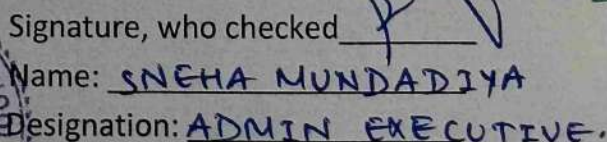 Signature, who checked
Name: SNEHA MUNDADIYA
Designation: ADMIN EXECUTIVE.